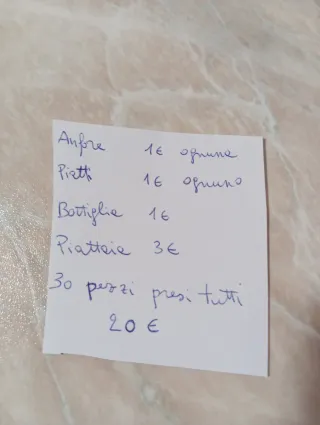 Anfore 1€ ognuna
Piatti 1€ ognuno
Bottiglia 1€
Piattaia 3€
30 pezzi presi tutti
20 €